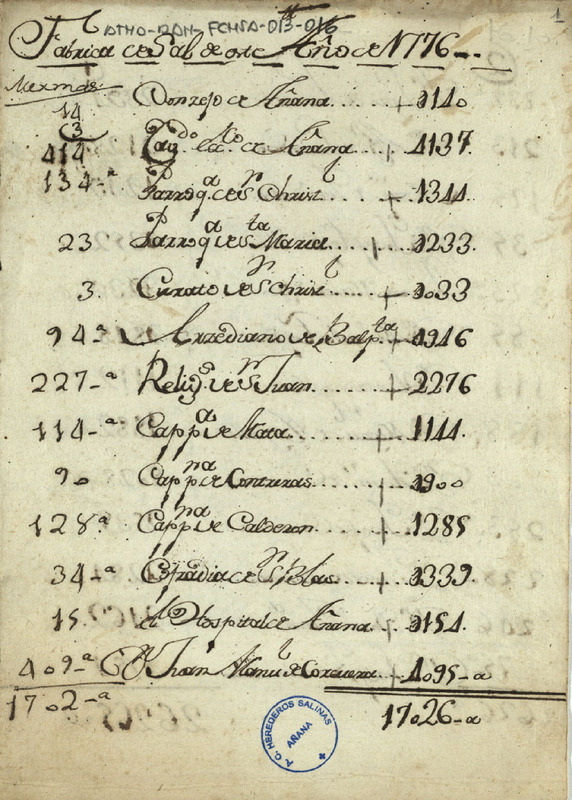 ATHA-DAH-FCHSA-013-016
1
Fabrica de Sal de este Año de 1776
Mermas
14 Conzejo de Añana 0140
C3
414 Cav.do ecc.co de Añana 4137
134-a Parroq.a de S.n Christ.l 1344
23 Parroq.a de S.ta Maria 0233
3. Curato de S.n Christ.l 0033
94-a Arzediano de 0946
227-a Relig.s de S.n Juan 2276
114-a Capp.a de Mata 1144
90 Capp.na de Contreras 0900
128a Capp.na de Calderon 1285
34-a Cofradia de S.n Blas 0339
15 el Hospital de Añana 0154
409-a D.n Juan Man.l de Corcuera 4095-a
1702-a 17026-a
A.C. HEREDEROS SALINAS
AÑANA